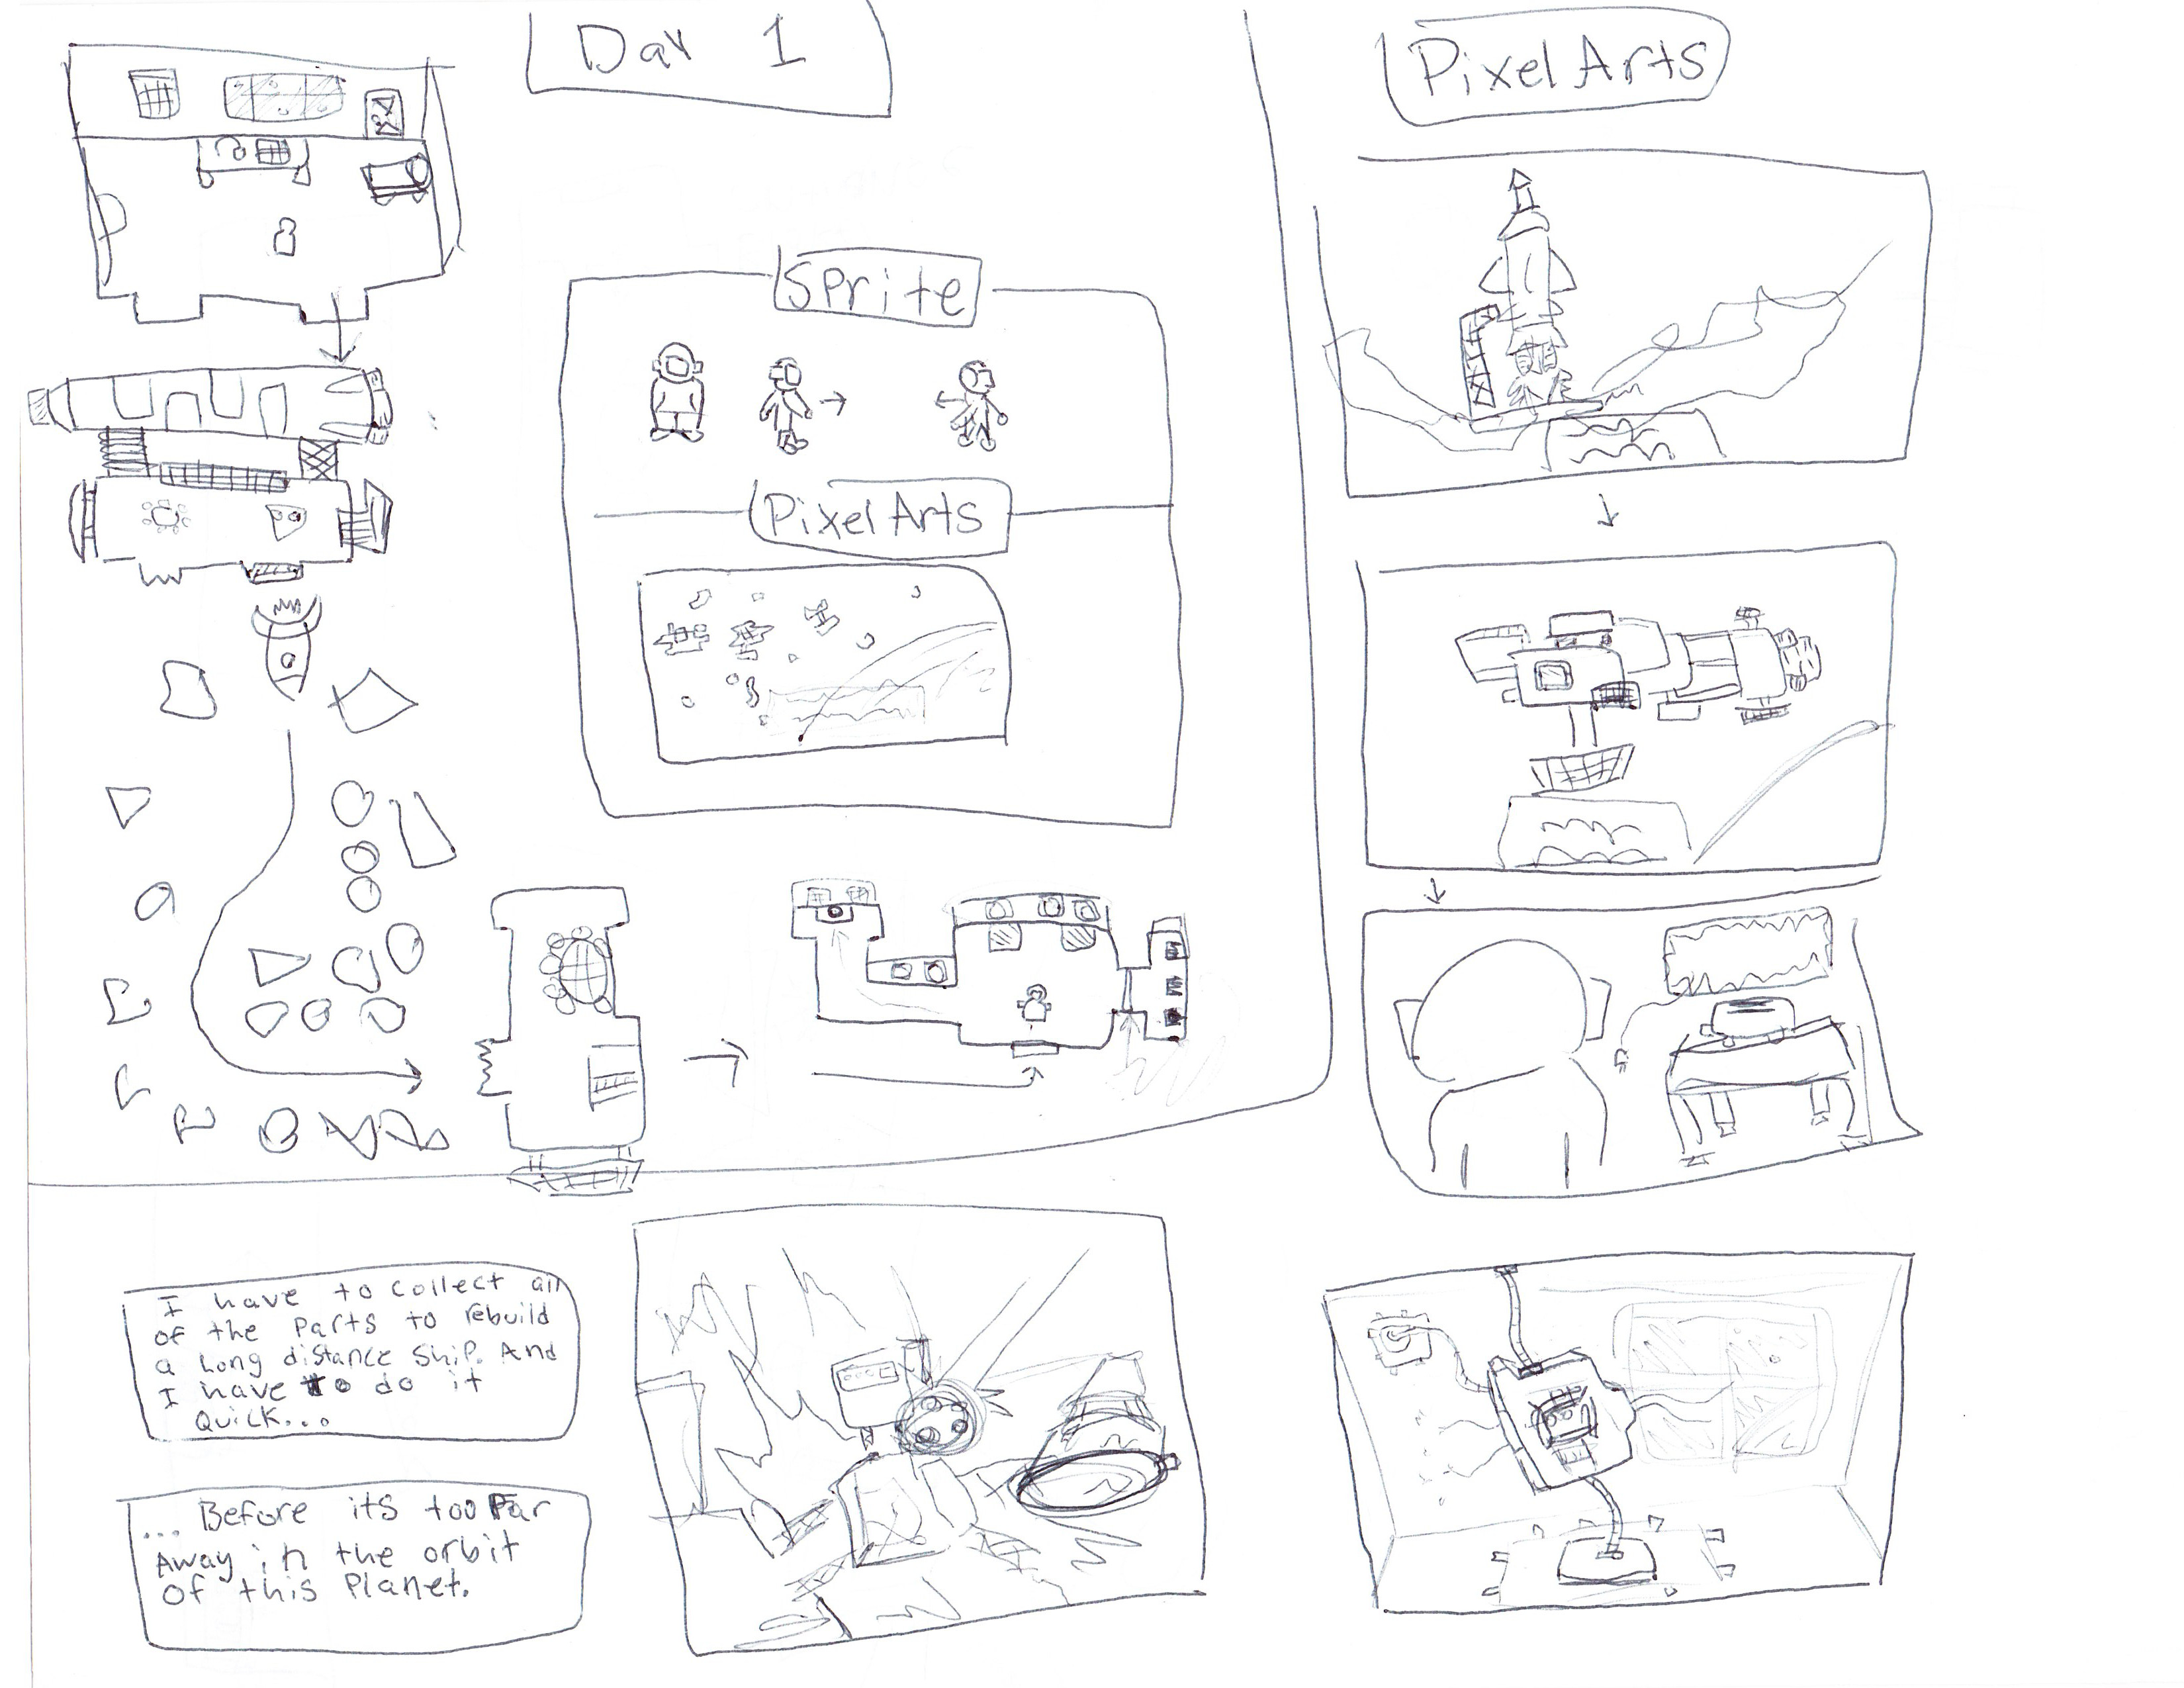 Day 1
Pixel Arts
Sprite
Pixel Arts
I have to collect all
of the Parts to rebuild
a Long distance Ship. And
I have to do it
Quick...
... Before its too Far
Away in the orbit
Of this Planet.